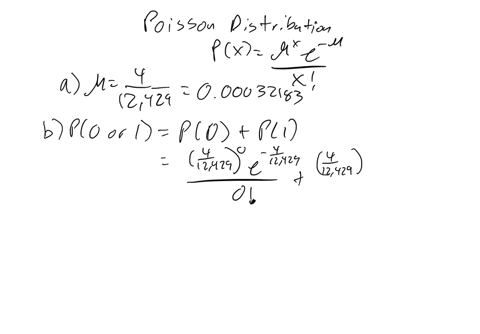 Poisson Distribution
P(x) = μ^x e^-μ / x!
a) μ = 4/12,429 = 0.00032183
b) P(0 or 1) = P(0) + P(1)
= (4/12,429)^0 e^-4/12,429 / 0! + (4/12,429)